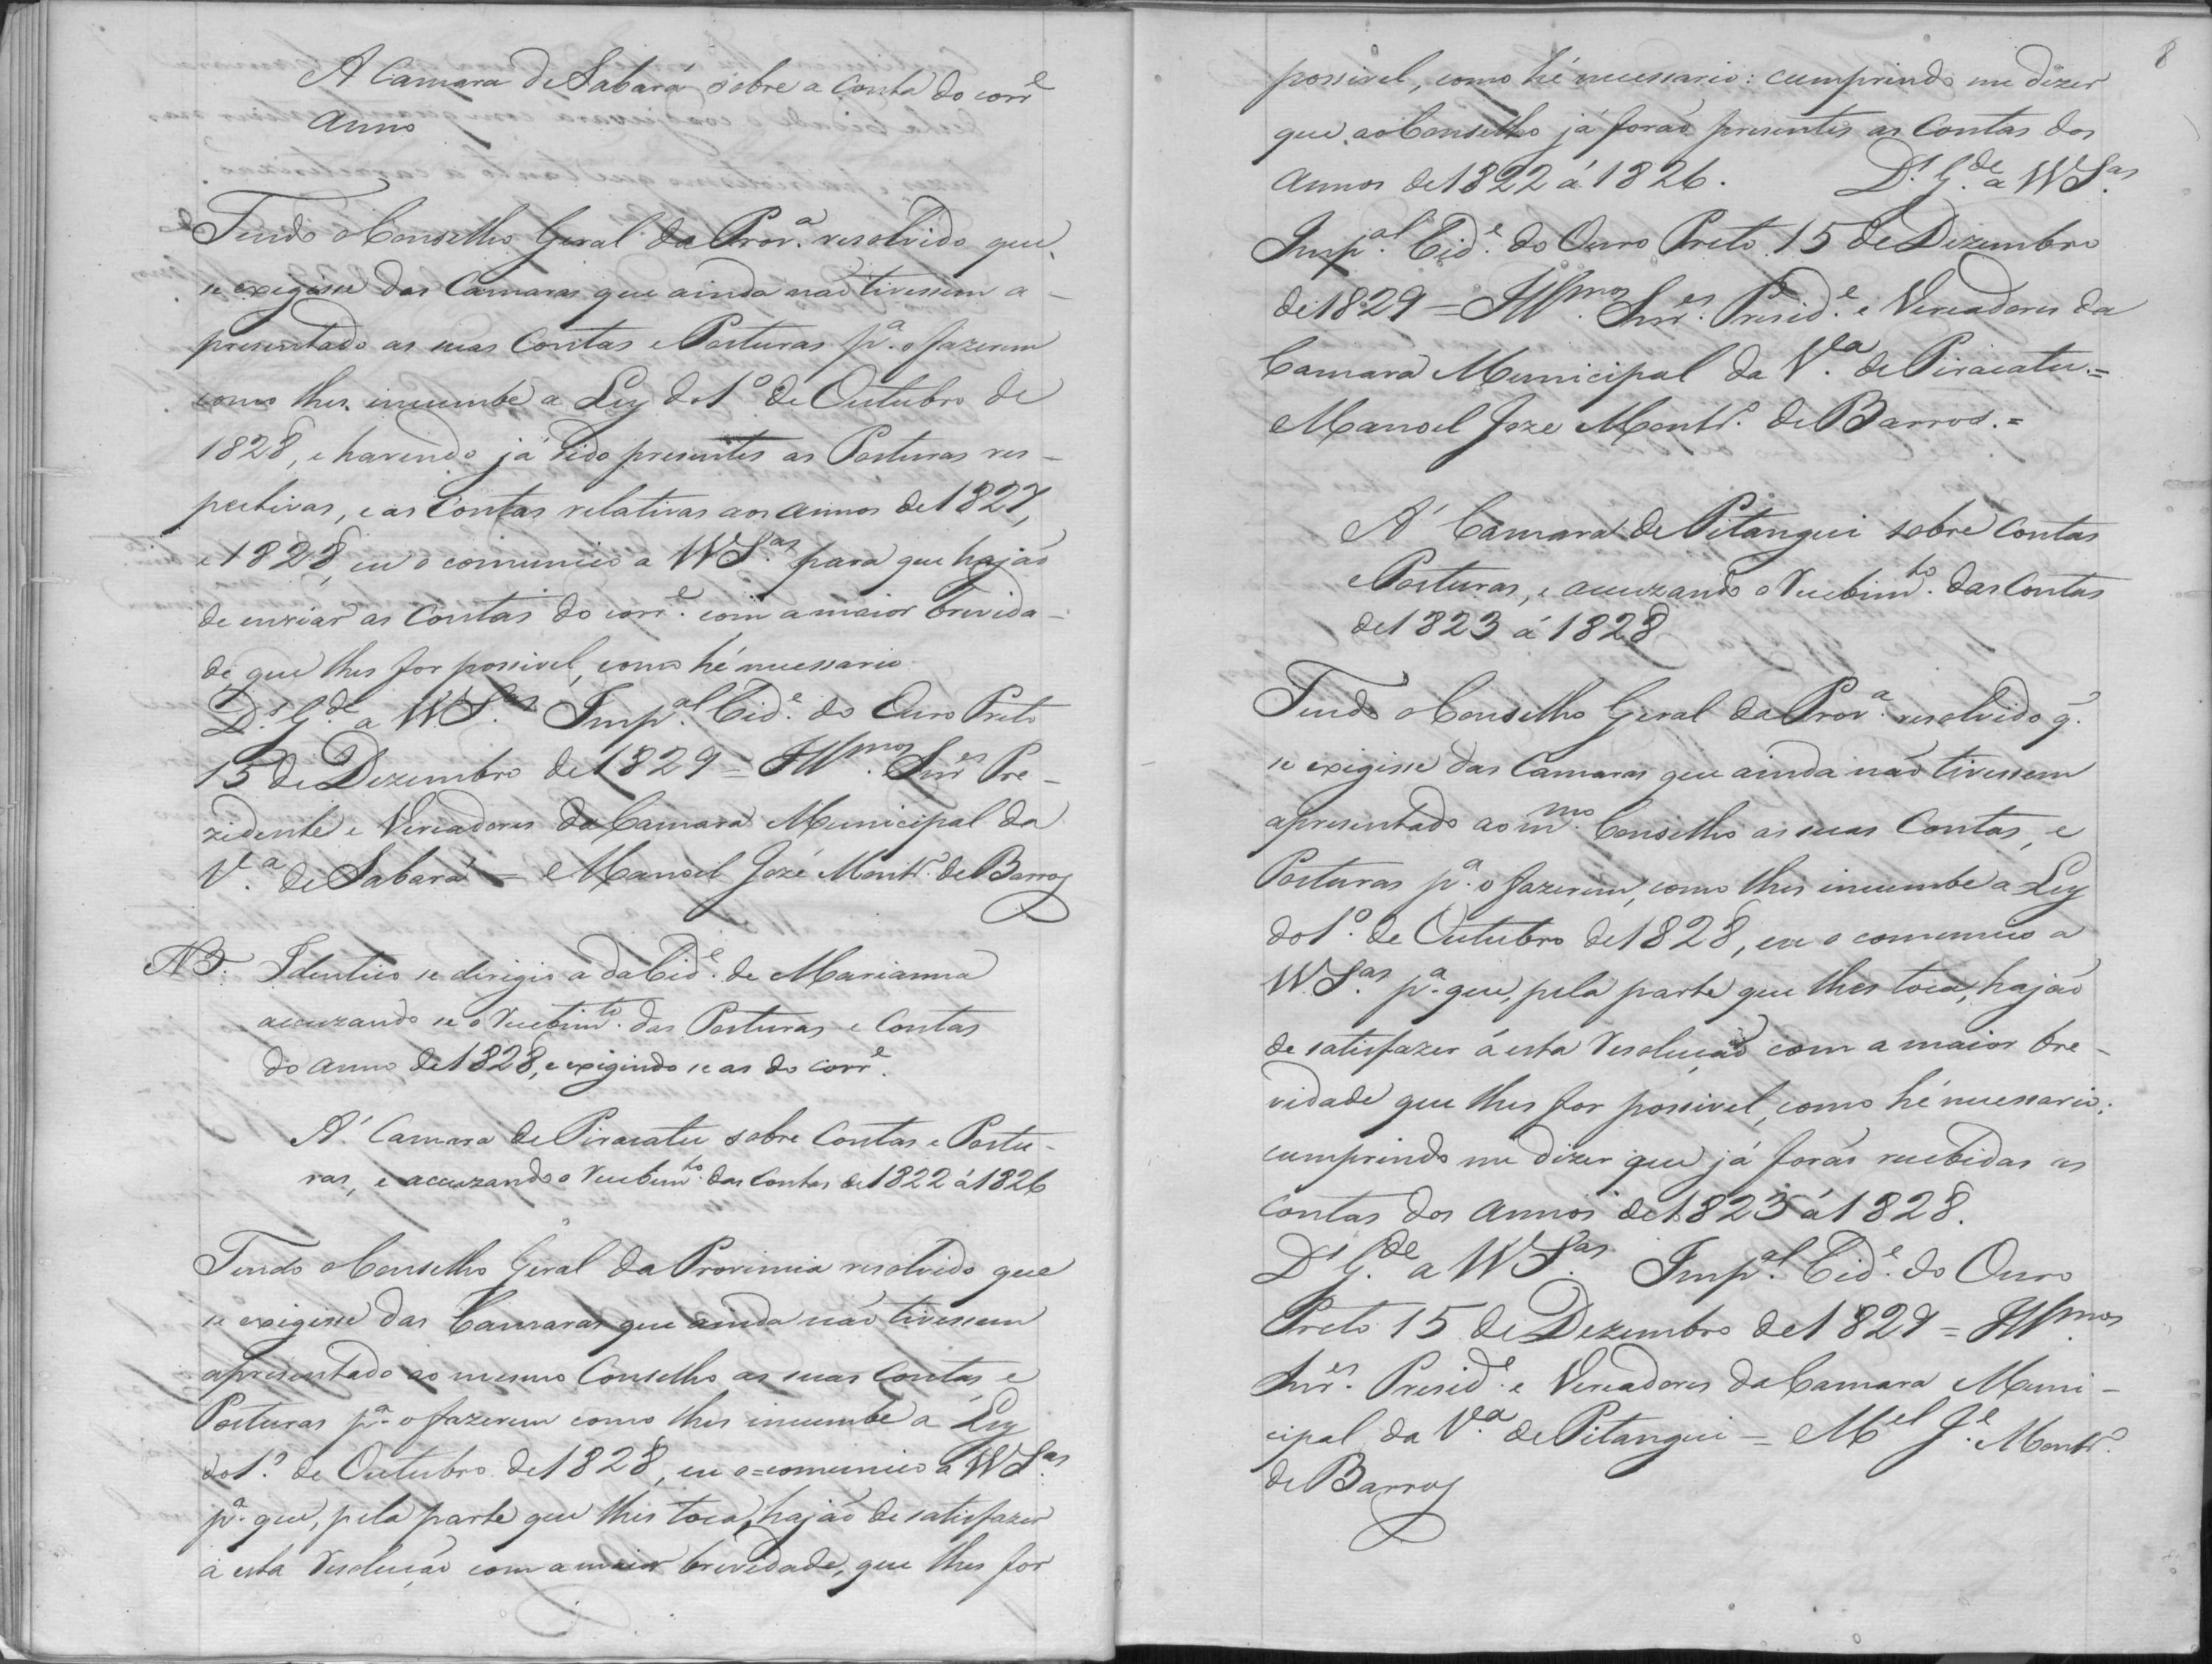 A Camara de Sabará sobre a Conta do corr.e
anno
Tendo o Conselho Geral da Prov.a resolvido que
se exigisse das Camaras que ainda não tivessem a-
presentado as suas Contas e Posturas p.a o fazerem
como lhes incumbe a Ley do 1.o de Outubro de
1828, e havendo já sido presentes as Posturas res-
pectivas, e as Contas relativas aos annos de 1827,
e 1828, eu o comunico a VV.S.as para que hajão
de enviar as Contas do corr.e com a maior brevida-
de que lhes for possivel, como hé necessario
D.s G.de a VV.S.as Imp.al Cid.e do Ouro Preto
15 de Dezembro de 1829 = Ill.mos Snr.es Pre-
zidente e Vereadores da Camara Municipal da
V.a de Sabará = Manoel José Montr.o de Barros
NB. Identico se dirigio a da Cid.e de Marianna
accuzando se o recebim.to das Posturas e Contas
do anno de 1828, e exigindo se as do corr.e
A' Camara de Piracatu sobre Contas e Postu-
ras, e accuzando o recebim.to das Contas de 1822 á 1826
Tendo o Conselho Geral da Provincia resolvido que
se exigisse das Camaras que ainda não tivessem
apresentado ao mesmo Conselho as suas Contas e
Posturas p.a o fazerem como lhes incumbe a Ley
do 1.o de Outubro de 1828, eu o = comunico a VV.S.as
p.a que, pela parte que lhes toca, hajão de satisfazer
á esta resolução com a maior brevidade, que lhes for
8
possivel, como hé necessario: cumprindo me dizer
que ao Conselho já forão presentes as Contas dos
annos de 1822 á 1826. D.s G.de a VV.S.as
Imp.al Cid.e do Ouro Preto 15 de Dezembro
de 1829 = Ill.mos Snr.es Presid.e e Vereadores da
Camara Municipal da V.a de Piracatu. =
Manoel Joze Montr.o de Barros. =
A' Camara de Pitangui sobre Contas
e Posturas, e acuzando o recebim.to das Contas
de 1823 á 1828
Tendo o Conselho Geral da Prov.a resolvido q.
se exigisse das Camaras que ainda não tivessem
apresentado ao m.mo Conselho as suas Contas, e
Posturas p.a o fazerem, como lhes incumbe a Ley
do 1.o de Outubro de 1828, eu o comunico a
VV.S.as p.a que, pela parte que lhes toca, hajão
de satisfazer á esta resolução com a maior bre-
vidade que lhes for possivel, como hé necessario;
cumprindo me dizer que já forão recebidas as
Contas dos annos de 1823 á 1828.
D.s G.de a VV.S.as Imp.al Cid.e do Ouro
Preto 15 de Dezembro de 1829 = Ill.mos
Snr.es Presid.e e Vereadores da Camara Muni-
cipal da V.a de Pitangui = M.el J.e Montr.o
de Barros